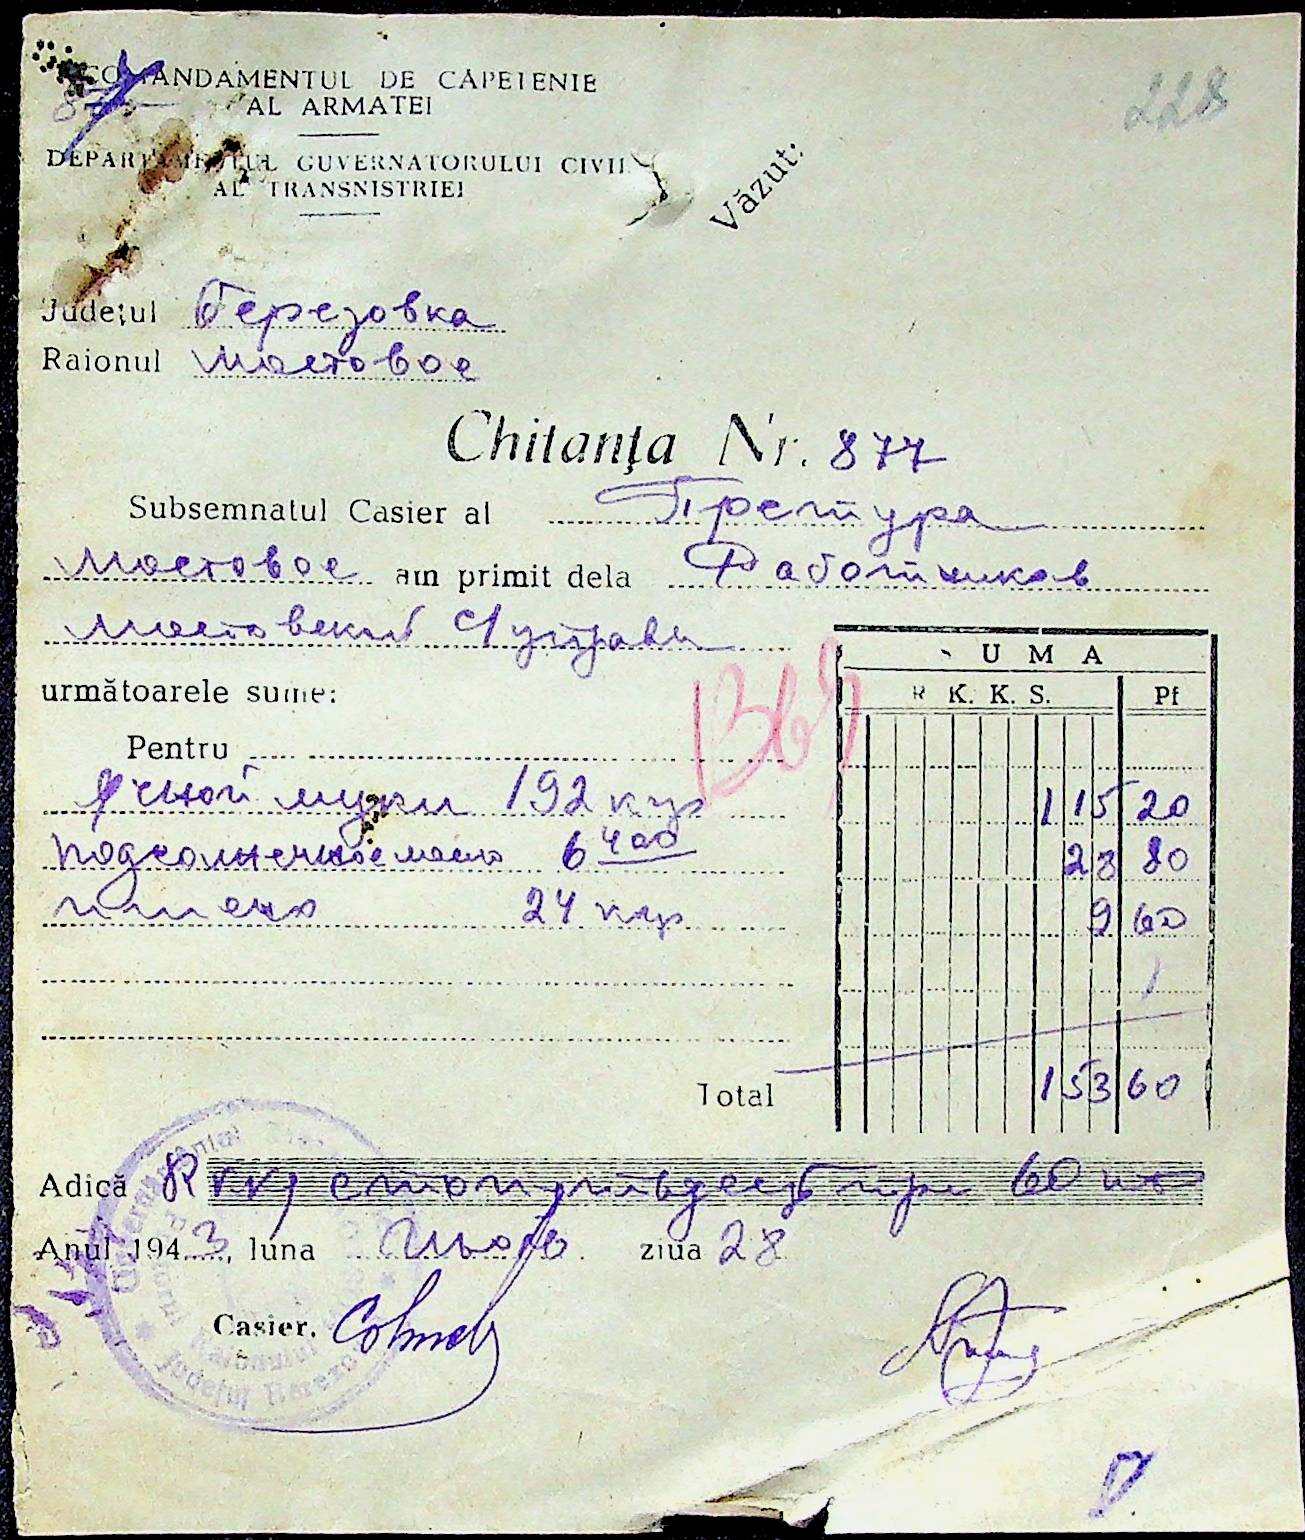 COMANDAMENTUL DE CAPETENIE
AL ARMATEI
DEPARTAMENTUL GUVERNATORULUI CIVIL
AL TRANSNISTRIEI
228
Văzut:
Județul Березовка
Raionul Мостовое
Chitanța Nr. 877
Subsemnatul Casier al Претура
Мостовое am primit dela Работников
Мостовской
următoarele sume:
SUMA
R. K. K. S. Pf
Pentru
Ячной муки 192 кгр 115 20
подсолнечное масло 6 400 28 80
пшено 24 кгр 9 60
Total 153 60
Adică Rккs стопятьдесят три 60 пф
Anul 1943, luna Июль ziua 28
Casier,
Județul Berezovca